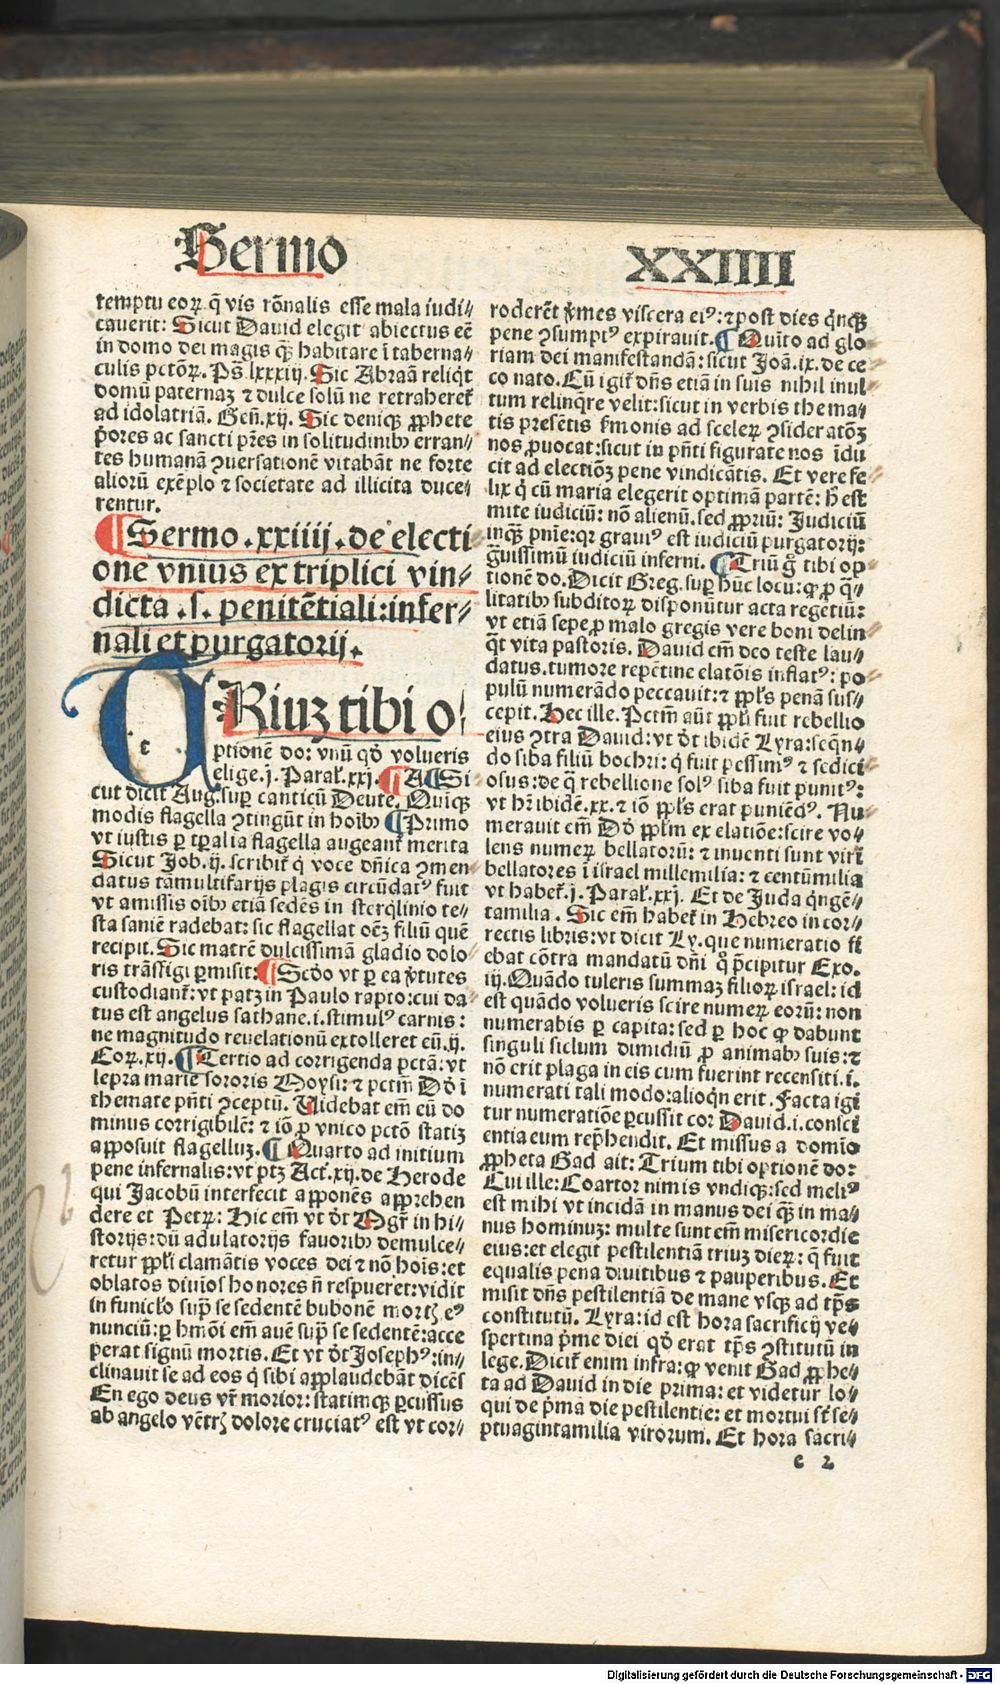 Sermo XXIIII
temptu eoꝝ q̄ vis rōnalis esse mala iudi⸗
cauerit: Sicut Dauid elegit abiectus eē
in domo dei magis q̄ꝫ habitare ī taberna⸗
culis pctōꝝ. Ps̄. lxxxiij. Sic Abraā reliq̇t
domū paternaꝫ ⁊ dulce solū ne retraheret̉
ad idolatriā. Gen̄. xij. Sic deniqꝫ ꝓphete
p̄ores ac sancti pr̄es in solitudinibꝰ erran⸗
tes humanā ꝯuersationē vitabāt ne forte
aliorū exēplo ⁊ societate ad illicita duce⸗
rentur.
¶Sermo .xxiiij. de electi
one vnius ex triplici vin⸗
dicta .s. penitētiali: infer⸗
nali et purgatorij.
TRiuꝫ tibi o⸗
ptionē do: vnū qḋ volueris
elige. j. Paral̓. xxj. ¶A¶Si⸗
cut dicit Aug. suꝑ canticū Deute. Quiqꝫ
modis flagella ꝯtingūt in hoībꝰ ¶Primo
vt iustis ꝑ tꝑalia flagella augeant̉ merita
Sicut Job. ij. scribit̉ q̇ voce dn̄ica ꝯmen⸗
datus tamultifarijs plagis circūdatꝰ fuit
vt amissis oībꝰ etiā sedēs in sterq̇linio te⸗
sta saniē radebat: sic flagellat oēꝫ filiū quē
recipit. Sic matrē dulcissimā gladio dolo⸗
ris trāsfigi ꝑmisit: ¶Scḋo vt ꝑ ea v̓tutes
custodiant̉: vt patꝫ in Paulo rapto: cui da⸗
tus est angelus sathane .i. stimulꝰ carnis:
ne magnitudo reuelationū extolleret eū. ij.
Coꝝ. xij. ¶Tertio ad corrigenda pctā: vt
lepra marie sororis Moysi: ⁊ pctm̄ Dḋ ī
themate pn̄ti ꝯceptū. Uidebat em̄ eū do⸗
minus corrigibilē: ⁊ iō ꝓ vnico pctō statiꝫ
apposuit flagelluꝫ. ¶Quarto ad initium
pene infernalis: vt ptꝫ Act̉. xij. de Herode
qui Jacobū interfecit apponēs apprehen
dere et Petꝝ: Hic em̄ vt ḋt Mgr̄ in hi⸗
storijs: dū adulatorijs fauoribꝰ demulce⸗
retur ꝓpl̓i clamātis voces dei ⁊ nō hoīs: et
oblatos diuios honores n̄ respueret: vidit
in funicl̓o sup̄ se sedentē bubonē mort̉ eꝰ
nunciū: ꝑ hmōi em̄ auē sup̄ se sedentē: acce
perat signū mortis. Et vt ḋt Josephꝰ: in⸗
clinauit se ad eos q̇ sibi applaudebāt dicēs
En ego deus vr̄ morior: statimqꝫ ꝑcussus
ab angelo vētr̉ dolore cruciatꝰ est vt cor⸗
roderēt v̓mes viscera eiꝰ: ⁊ post dies q̇nqꝫ
pene ꝯsumptꝰ expirauit. ¶Quīto ad glo⸗
riam dei manifestandā: sicut Joā. ix. de ce⸗
co nato. Cū igit̉ dn̄s etiā in suis nihil inul⸗
tum relinq̄re velit: sicut in verbis thema⸗
tis presētis s̓monis ad sceleꝝ ꝯsideratōꝫ
nos ꝓuocat: sicut in pn̄ti figurate nos īdu
cit ad electiōꝫ pene vindicātis. Et vere fe⸗
lix q̇ cū maria elegerit optimā partē: h̄ est
mite iudiciū: nō alienū. sed ꝓpriū: Judiciū
inqꝫ pn̄ie: qꝛ grauiꝰ est iudiciū purgatorij:
g̓uissimū iudiciū inferni. ¶Triū g̊ tibi op⸗
tionē do. Dicit Greg. suꝑ hūc locū: ꝙ ꝓ q̄⸗
litatibꝰ subditoꝝ disponūtur acta regētiū:
vt etiā sepe ꝓ malo gregis vere boni delin⸗
q̄t vita pastoris. Dauid em̄ deo teste lau⸗
datus. tumore repētine elatōis inflatꝰ: po⸗
pulū numerādo peccauit: ⁊ ꝓpl̓s penā sus⸗
cepit. Hec ille. Pctm̄ aūt ꝓpl̓i fuit rebellio
eius ꝯtra Dauid: vt ḋt ibidē Lyra: seq̄n⸗
do siba filiū bochri: q̇ fuit pessimꝰ ⁊ sedici⸗
osus: de q̄ rebellione solꝰ siba fuit punitꝰ:
vt hr̄ ibidē. xx. ⁊ iō ꝓpl̓s erat puniēdꝰ. Nu⸗
merauit em̄ Dḋ ꝓpl̓m ex elatiōe: scire vo⸗
lens numeꝝ bellatorū: ⁊ inuenti sunt viri
bellatores ī israel millemilia: ⁊ centūmilia
vt habet̉. j. Paral̓. xxj. Et de Juda q̇ngē⸗
tamilia. Sic em̄ habet̉ in Hebreo in cor⸗
rectis libris: vt dicit Ly. que numeratio fi
ebat cōtra mandatū dn̄i qḋ p̄cipitur Exo.
iij. Quādo tuleris summaꝫ filioꝝ israel: id
est quādo volueris scire numeꝝ eorū: non
numerabis ꝑ capita: sed ꝑ hoc ꝙ dabunt
singuli siclum dimidiū ꝓ animabꝰ suis: ⁊
nō erit plaga in eis cum fuerint recensiti .i.
numerati tali modo: alioqn̄ erit. Facta igi
tur numeratiōe ꝑcussit cor Dauid .i. consci
entia eum rep̄hendit. Et missus a domīo
ꝓpheta Gad ait: Trium tibi optionē do:
Cui ille: Coartor nimis vndiqꝫ: sed meliꝰ
est mihi vt incidā in manus dei q̄ꝫ in ma⸗
nus hominuꝫ: multe sunt em̄ misericordie
eius: et elegit pestilentiā triuꝫ dieꝝ: q̄ fuit
equalis pena diuitibus ⁊ pauperibus. Et
misit dn̄s pestilentiā de mane vsqꝫ ad tp̄s
constitutū. Lyra: id est hora sacrificij ve⸗
spertina p̄me diei qḋ erat tp̄s ꝯstitutū in
lege. Dicit̉ enim infra: ꝙ venit Gad ꝓphe⸗
ta ad Dauid in die prima: et videtur lo⸗
qui de p̄ma die pestilentie: et mortui sūt se⸗
ptuagintamilia virorum. Et hora sacri⸗
c 2
Digitalisierung gefördert durch die Deutsche Forschungsgemeinschaft - DFG